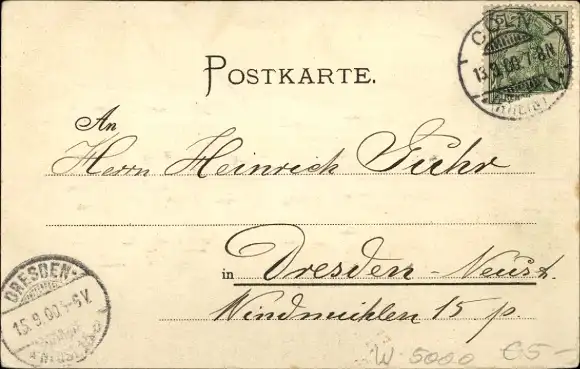 5
CÖLN
13.9.00.7-8N
(RHEIN)
POSTKARTE.
An
Herrn Heinrich Fuhr
in Dresden-Neust.
Windmühlen 15 p.
DRESDEN-
15.9.00.
W 5000 €5-